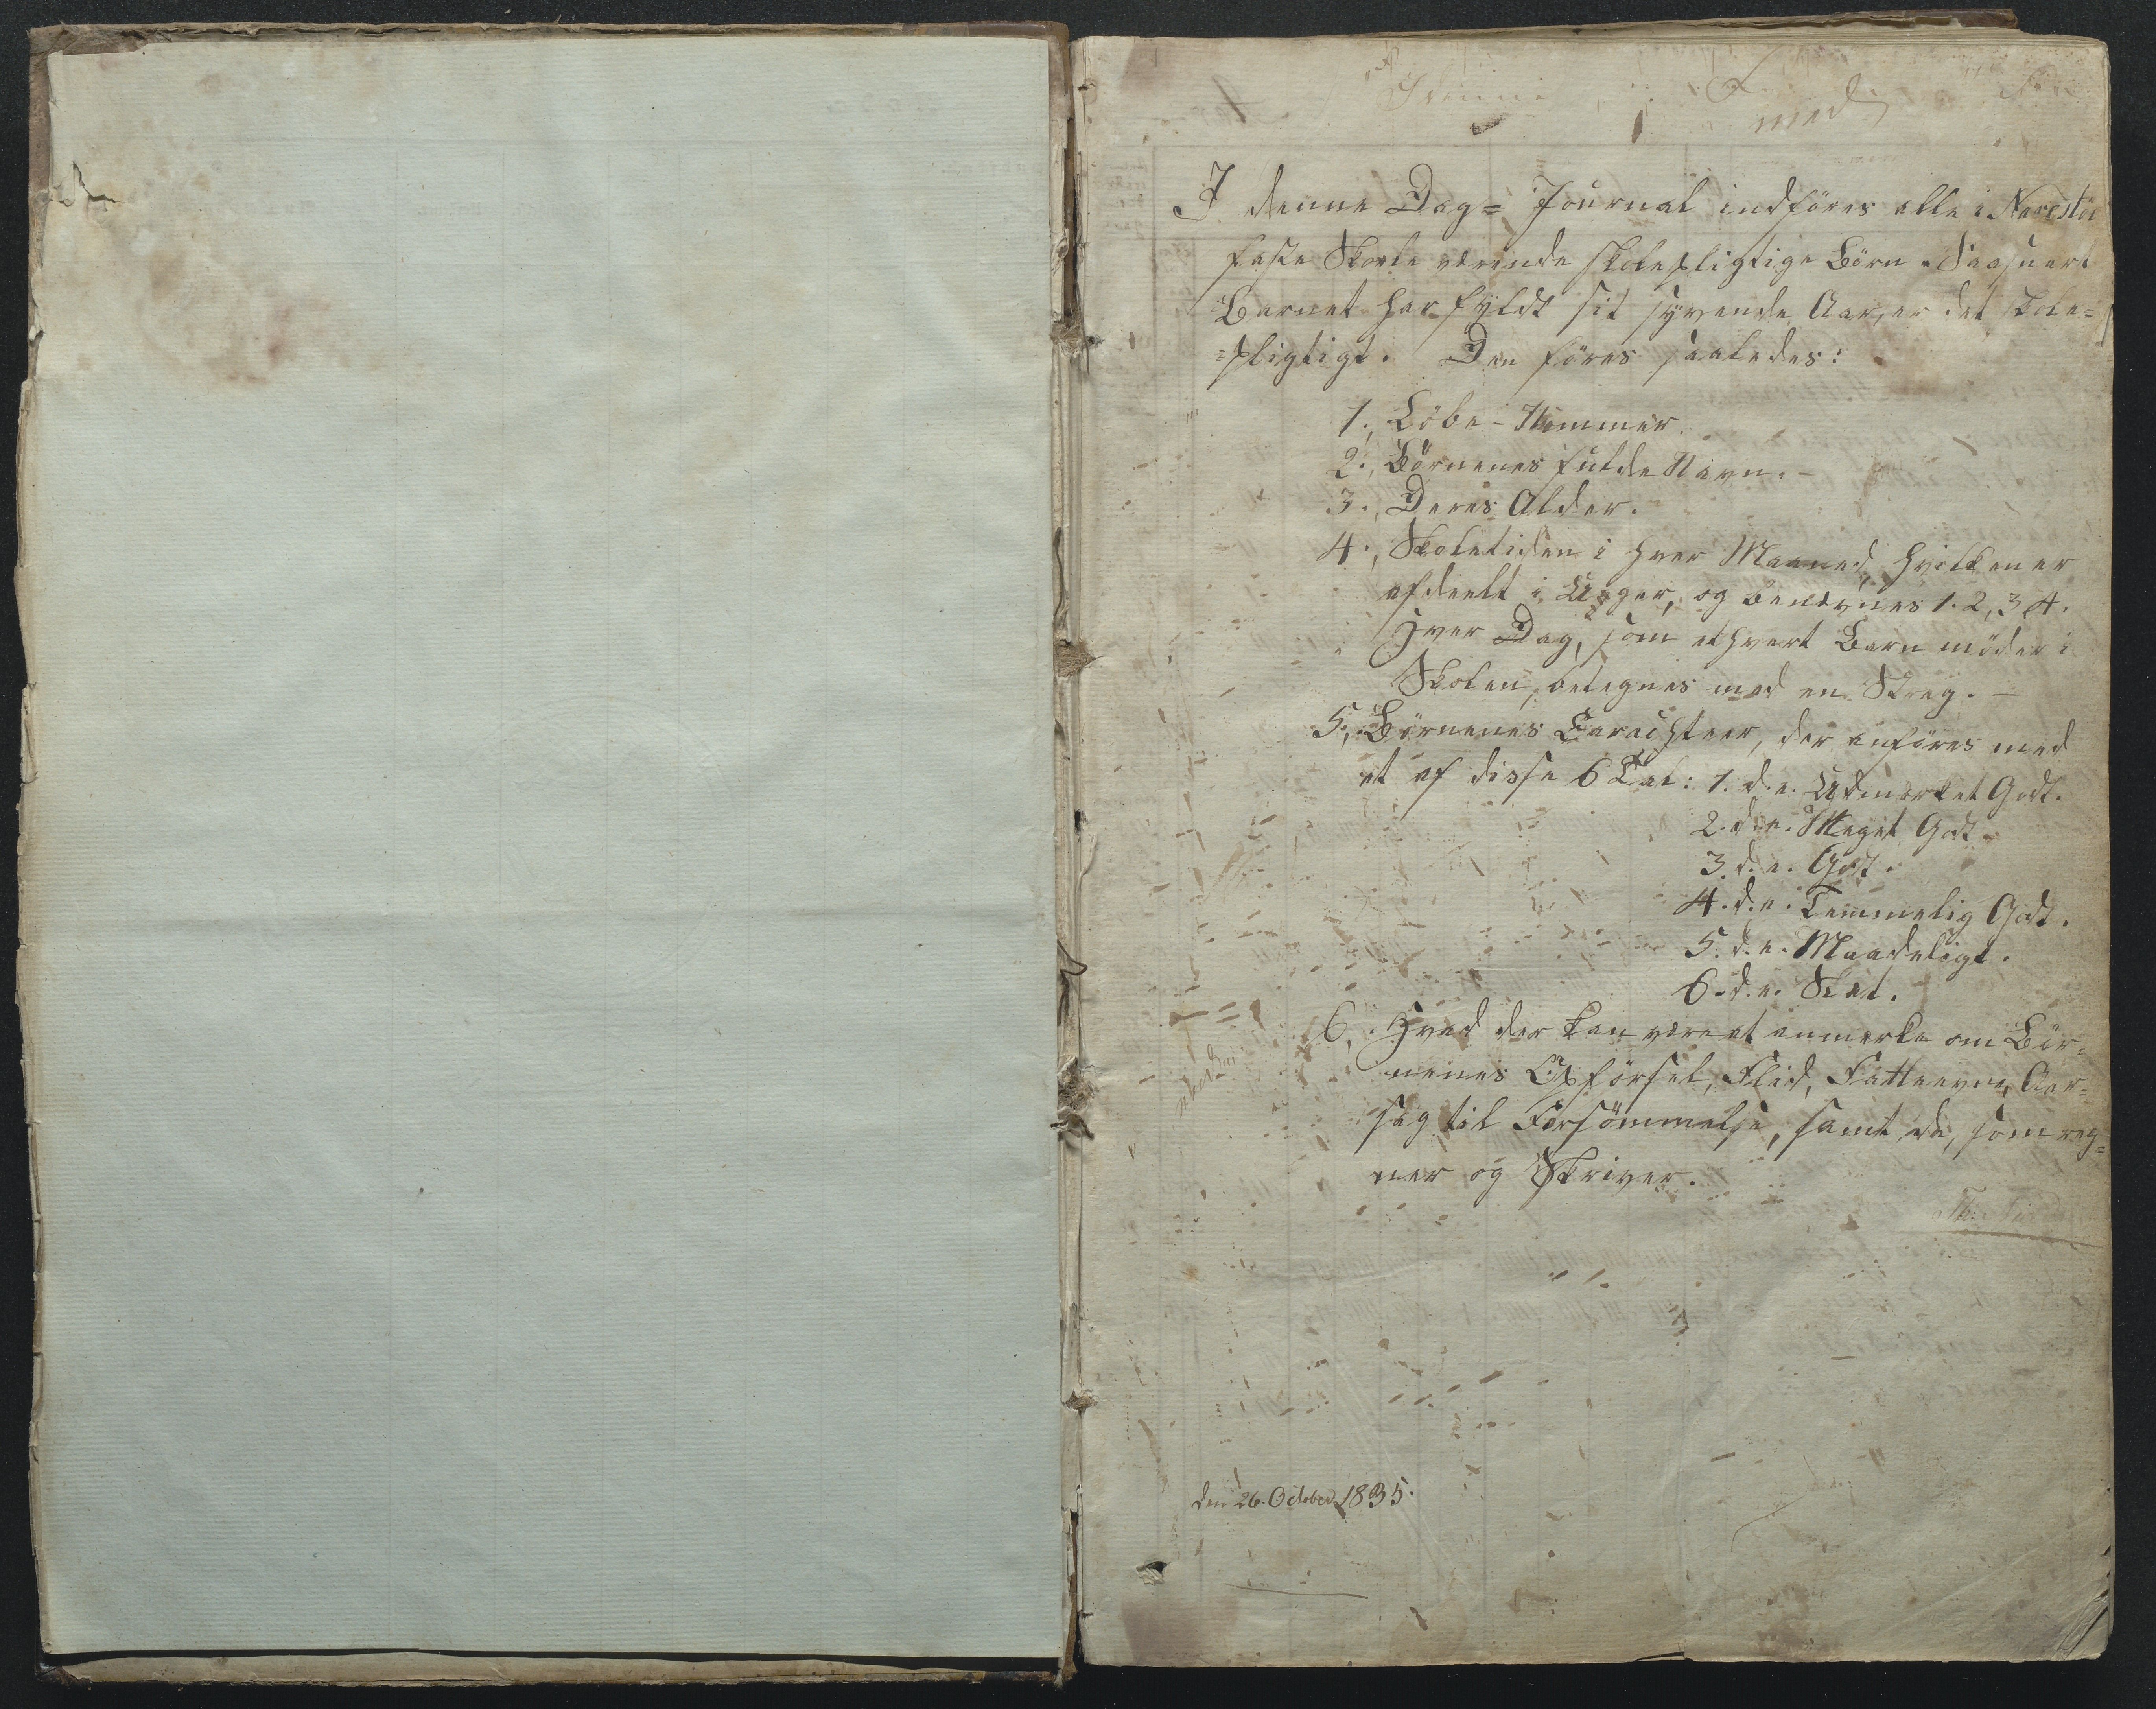 Idenne
med
I denne Dag= Journal indföres alle i Narestöe
faste Skole værende skolepligtige Börn. Saasnart
Barnet har fyldt sit syvende Aar, er det skole=
=pligtigt. Den föres saaledes:
1., Löbe-Nummer.
2., Börnenes fulde Navn. -
3., Deres Alder.
4., Skoletiden i hver Maaned, hvilken er
afdeelt i Uger, og benævnes 1. 2, 3, 4.
Hver Dag, som ethvert Barn möder i
Skolen, betegnes med en Streg. -
5., Börnenes Carachteer, der anföres med
et af disse 6 Tal: 1. d.e. Udmærket Godt.
2. d.e. Meget Godt.
3. d.e. Godt.
4. d.e. Temmelig Godt.
5. d.e. Maadeligt.
6. d.e. Slet.
6., Hvad der kan være at anmærke om Bör=
nenes Opförsel, Flid, Fatteevne, Aar=
sag til Forsömmelse, samt de, som reg=
ner og Skriver.
den 26. October 1835.